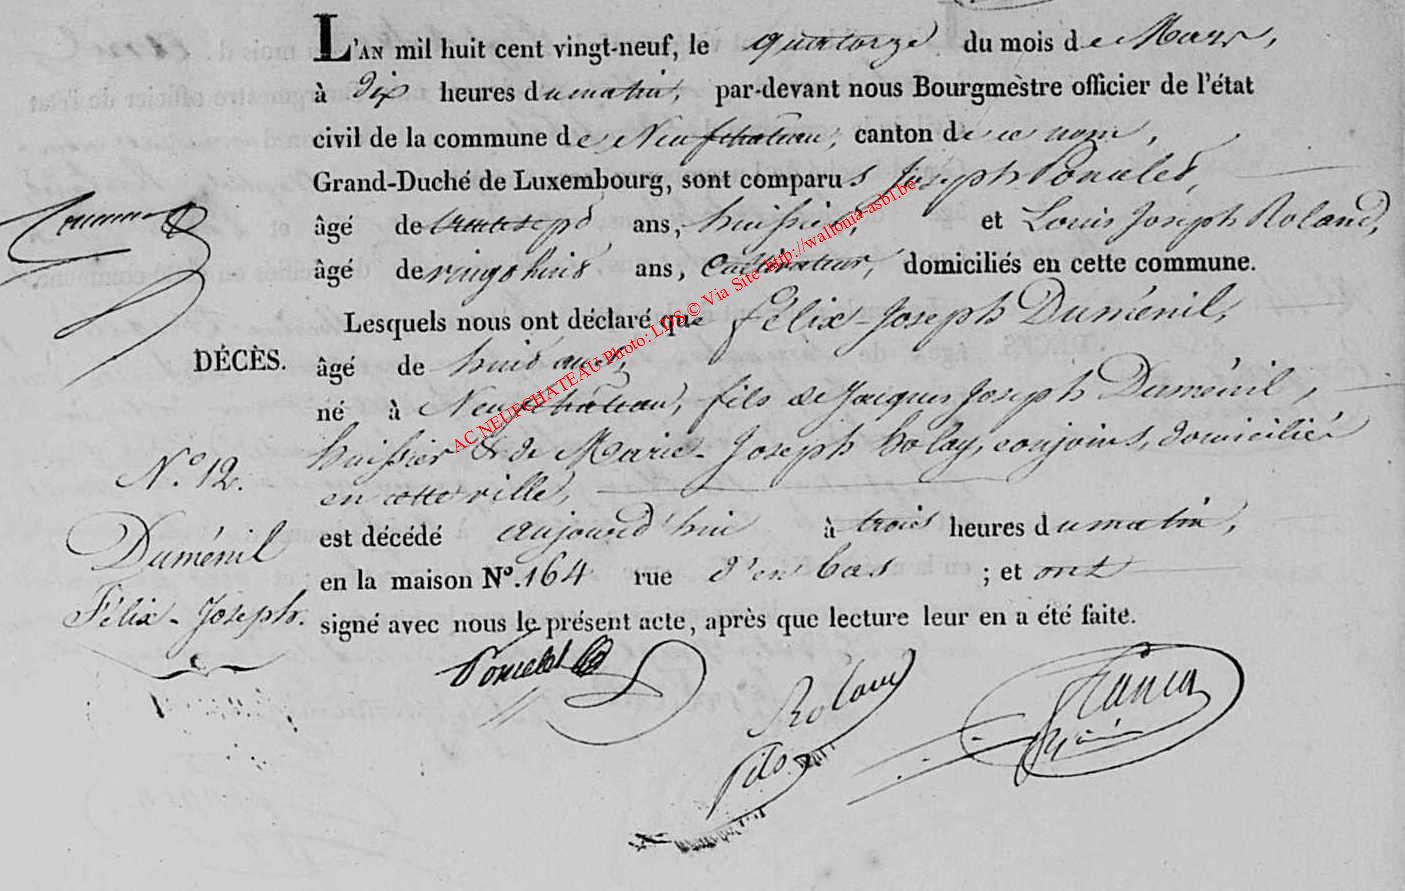 L'AN mil huit cent vingt-neuf, le quatorze du mois de Mars,
à dix heures du matin, par-devant nous Bourgmèstre officier de l'état
civil de la commune de Neufchateau, canton de ce nom,
Grand-Duché de Luxembourg, sont comparus Joseph Poncelet,
âgé de trentesept ans, huissier, et Louis Joseph Roland,
âgé de vingt huit ans, Cultivateur, domiciliés en cette commune.
Lesquels nous ont déclaré que Félix-Joseph Duménil,
DÉCÈS. âgé de huit ans,
né à Neufchateau, fils de Jacques Joseph Duménil,
huissier & de Marie-Joseph Colay, conjoins, domiciliés
N.° 12. en cette ville,
Duménil est décédé aujourd'hui à trois heures du matin,
en la maison N°. 164 rue d'en bas ; et ont
Félix-Joseph. signé avec nous le présent acte, après que lecture leur en a été faite.
Poncelet
Roland
fils
AC NEUFCHATEAU Photo: LDS © Via Site http://wallonia-asbl.be